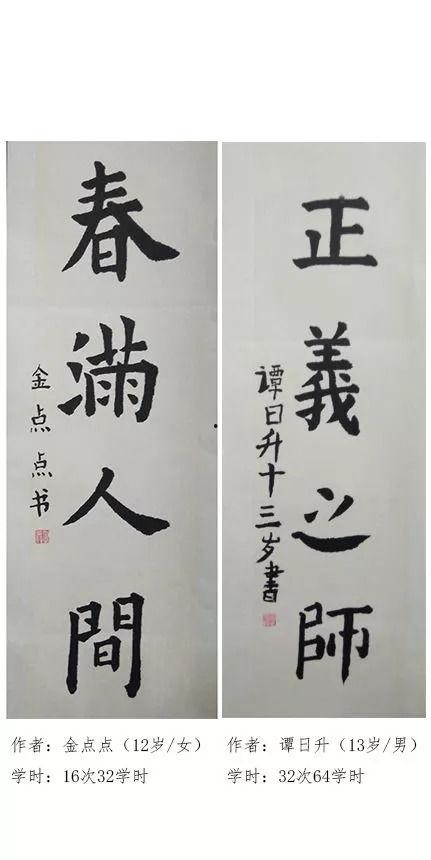 春满人間
金点点书
正義之師
谭日升十三岁書
作者：金点点（12岁/女）
学时：16次32学时
作者：谭日升（13岁/男）
学时：32次64学时